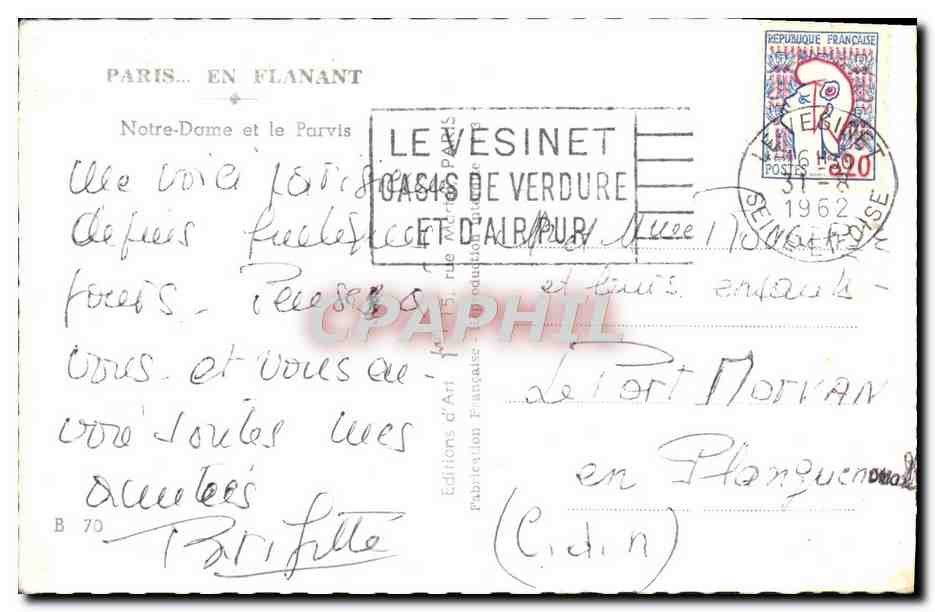 PARIS... EN FLANANT
Notre-Dame et le Parvis
Me voici parisienne
depuis quelques
jours. Pense à
vous et vous en-
voie toutes mes
amitiés
Brigitte
B 70
Editions d'Art
rue
PARIS
Fabrication Française - Reproduction interdite
LE VESINET
OASIS DE VERDURE
ET D'AIR PUR
REPUBLIQUE FRANÇAISE
POSTES
0,20
LE VESINET
16H
31 - X
1962
SEINE-ET-OISE
Mr et Mme
et leurs enfants -
Le Port MORVAN
en Planguenoual
(C. du N)
CPAPHIL